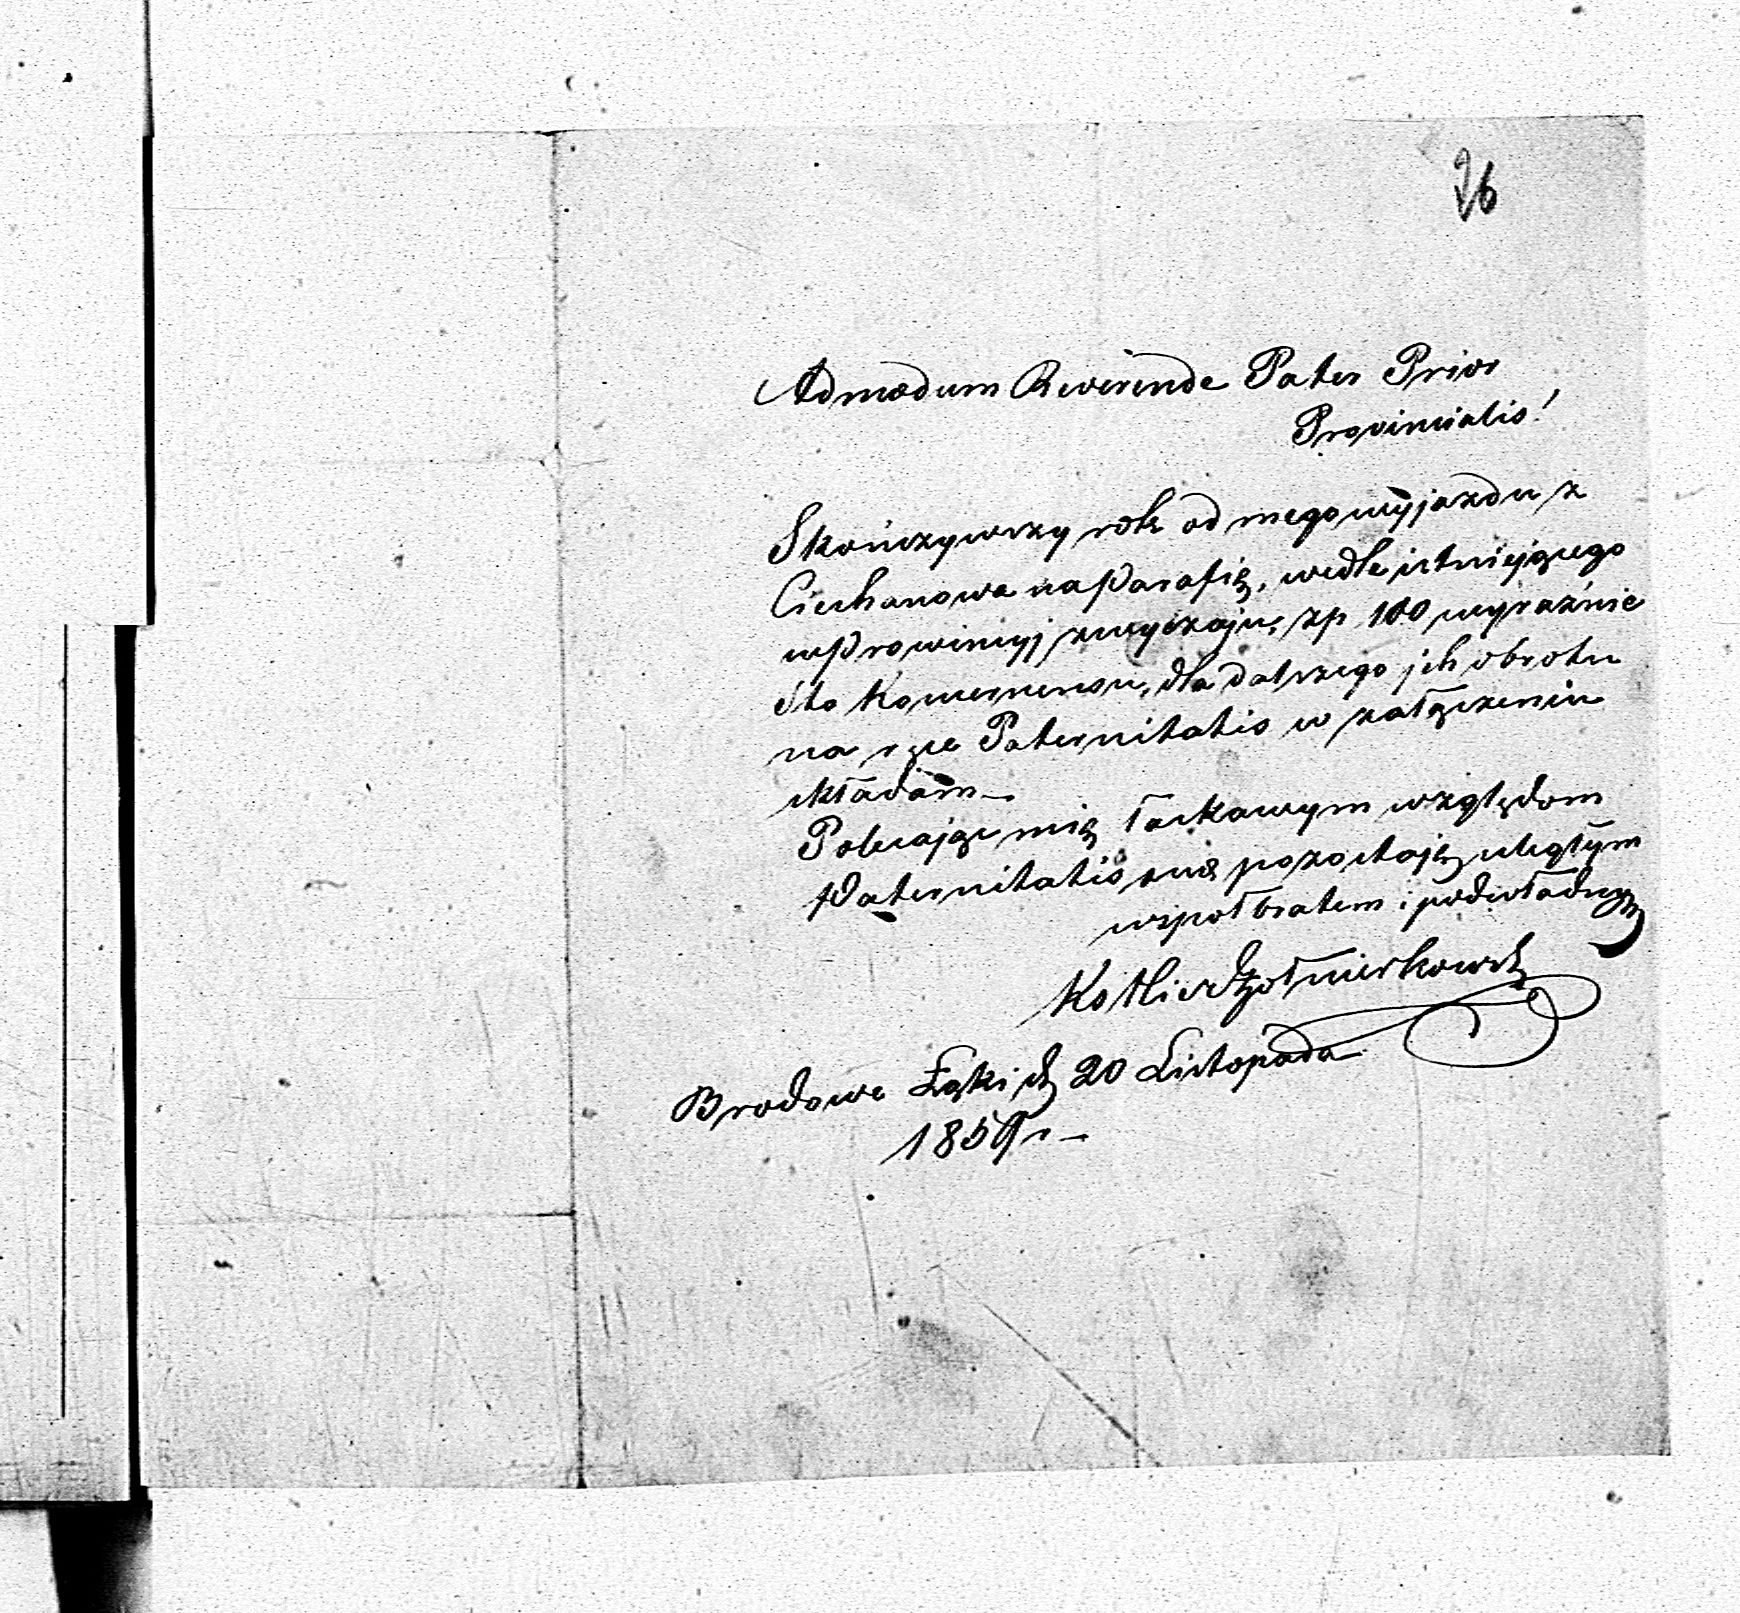 26
Admodum Reverende Pater Prior
Provincialis!
Skończywszy rok od mego wyjazdu z
Ciechanowa na Parafię, wedle istniejącego
w Prowincyj zwyczaju, zp 100 wyraźnie
Sto Konwersensu, dla dalszego jch obrotu
na ręce Paternitatis w załączeniu
składam—
Polecając mię łaskawym względom
Paternitatis suæ pozostaję uległym
wspołbratem i podwładnym
Ks Żołnierkowski
Brodowe Łąki d 20 Listopada
1859 r—